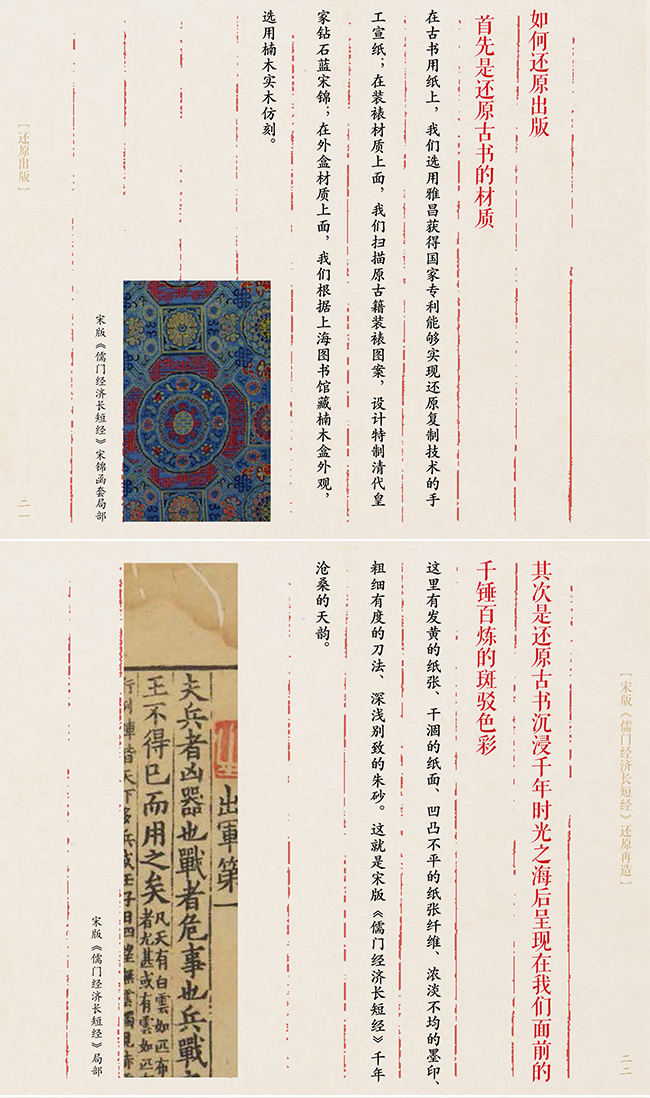 如何还原出版
首先是还原古书的材质
在古书用纸上，我们选用雅昌获得国家专利能够实现还原复制技术的手
工宣纸；在装裱材质上面，我们扫描原古籍装裱图案，设计特制清代皇
家钻石蓝宋锦；在外盒材质上面，我们根据上海图书馆藏楠木盒外观，
选用楠木实木仿刻。
宋版《儒门经济长短经》宋锦函套局部
［还原出版］
二一
［宋版《儒门经济长短经》还原再造］
二二
其次是还原古书沉浸千年时光之海后呈现在我们面前的
千锤百炼的斑驳色彩
这里有发黄的纸张、干涸的纸面、凹凸不平的纸张纤维、浓淡不均的墨印、
粗细有度的刀法、深浅别致的朱砂。这就是宋版《儒门经济长短经》千年
沧桑的天韵。
出軍第一
夫兵者凶器也戰者危事也兵戰
王不得已而用之矣
凡天有白雲如匹布
者尤甚或有雲如匹
宋版《儒门经济长短经》局部